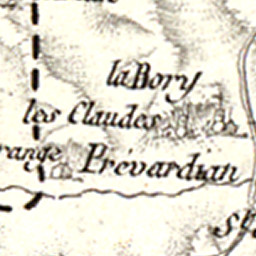 la Bory
les Claudes
range Prévardian
St